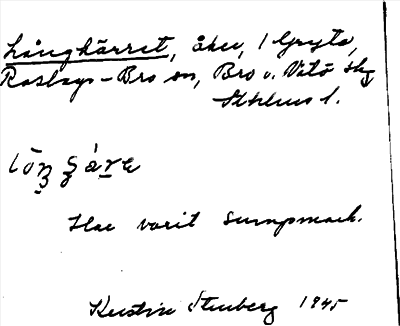 Långkärret, åker, 1 Gryta,
Roslags-Bro sn, Bro o. Vätö skg
Sthlms l.
Har varit sumpmark.
Kerstin Stenberg 1945